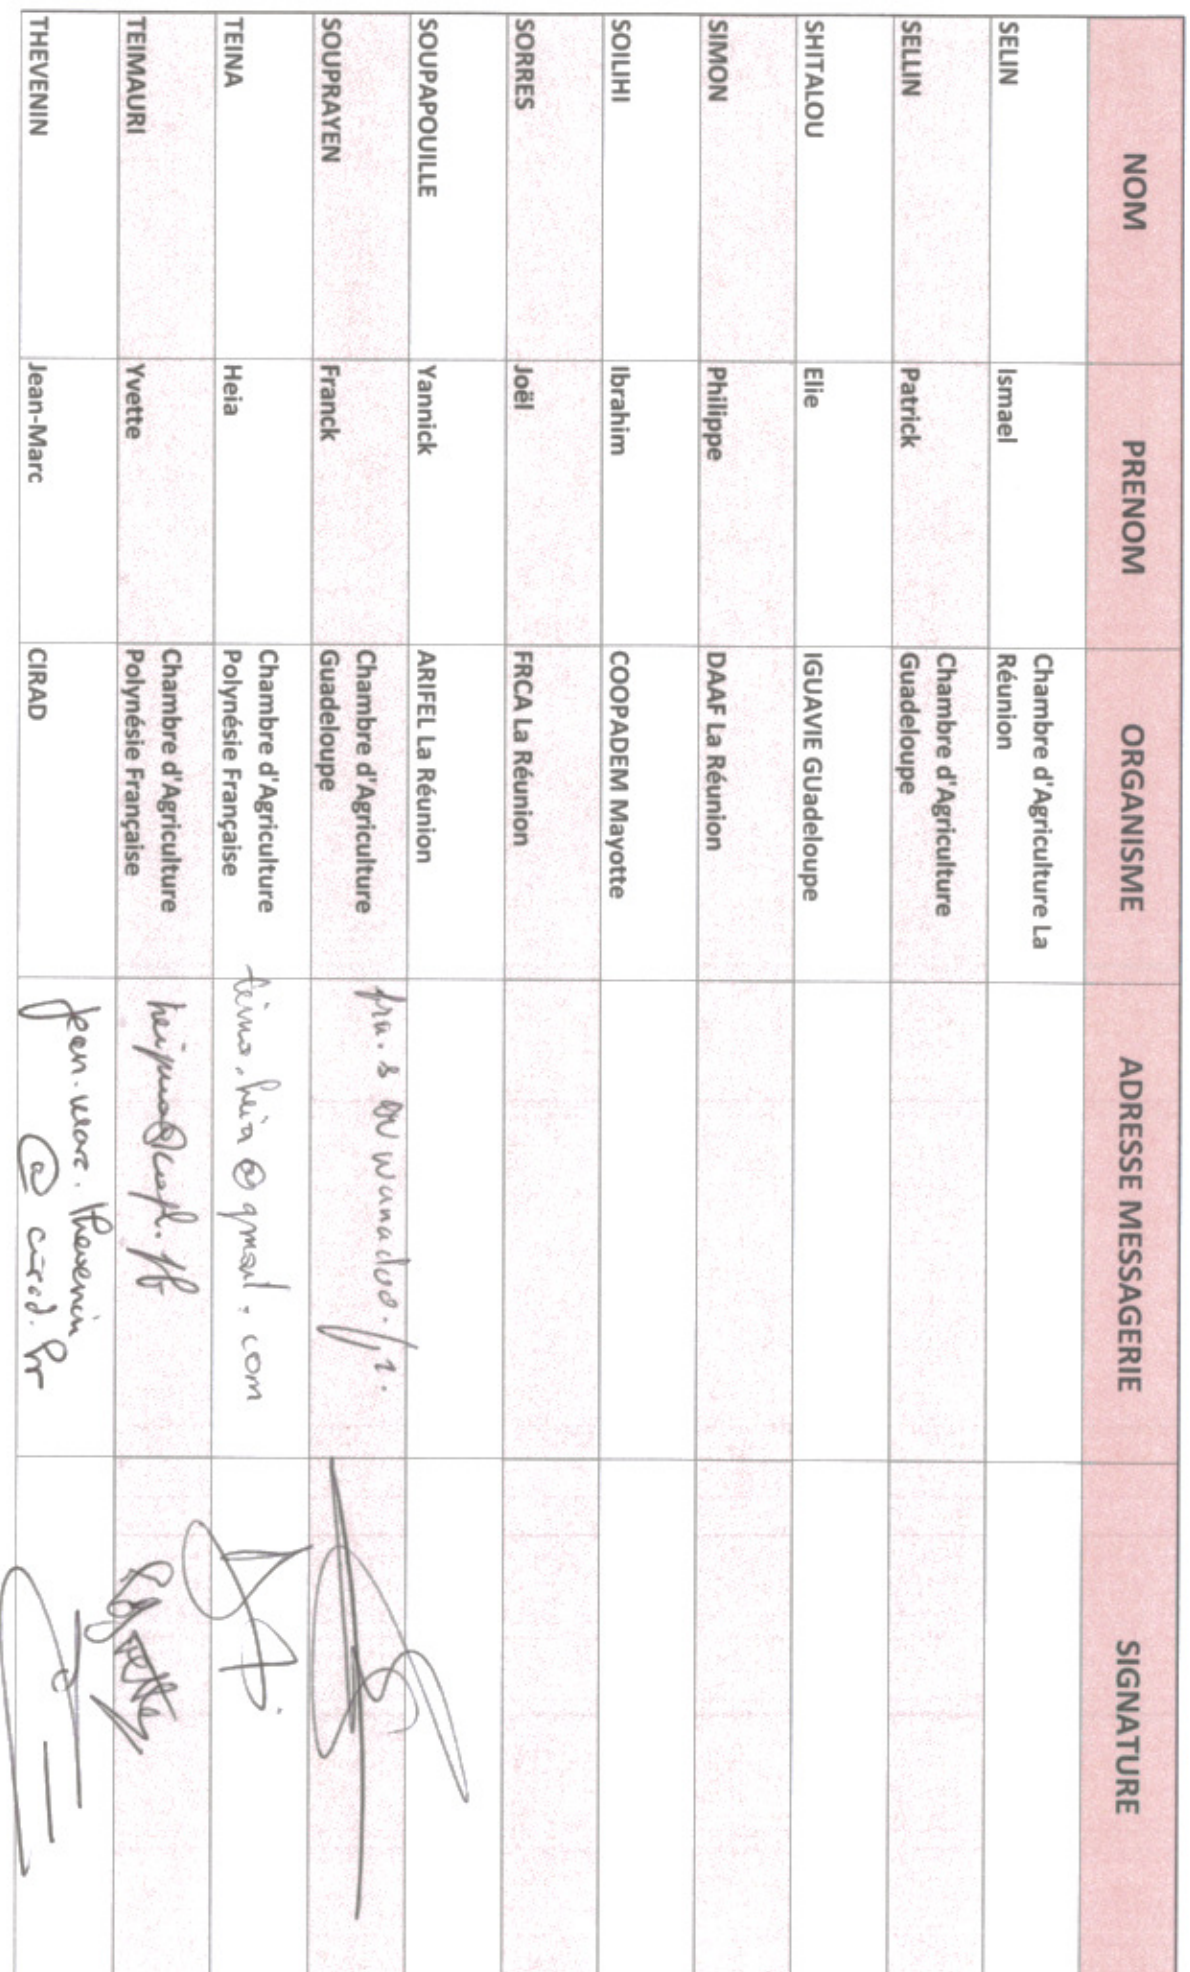 NOM PRENOM ORGANISME ADRESSE MESSAGERIE SIGNATURE
SELIN Ismael Chambre d'Agriculture La
Réunion
SELLIN Patrick Chambre d'Agriculture
Guadeloupe
SHITALOU Elie IGUAVIE GUadeloupe
SIMON Philippe DAAF La Réunion
SOILIHI Ibrahim COOPADEM Mayotte
SORRES Joël FRCA La Réunion
SOUPAPOUILLE Yannick ARIFEL La Réunion
SOUPRAYEN Franck Chambre d'Agriculture
Guadeloupe
TEINA Heia Chambre d'Agriculture
Polynésie Française
teina.heia@gmail.com
TEIMAURI Yvette Chambre d'Agriculture
Polynésie Française
THEVENIN Jean-Marc CIRAD
jean-marc.thevenin
@cirad.fr